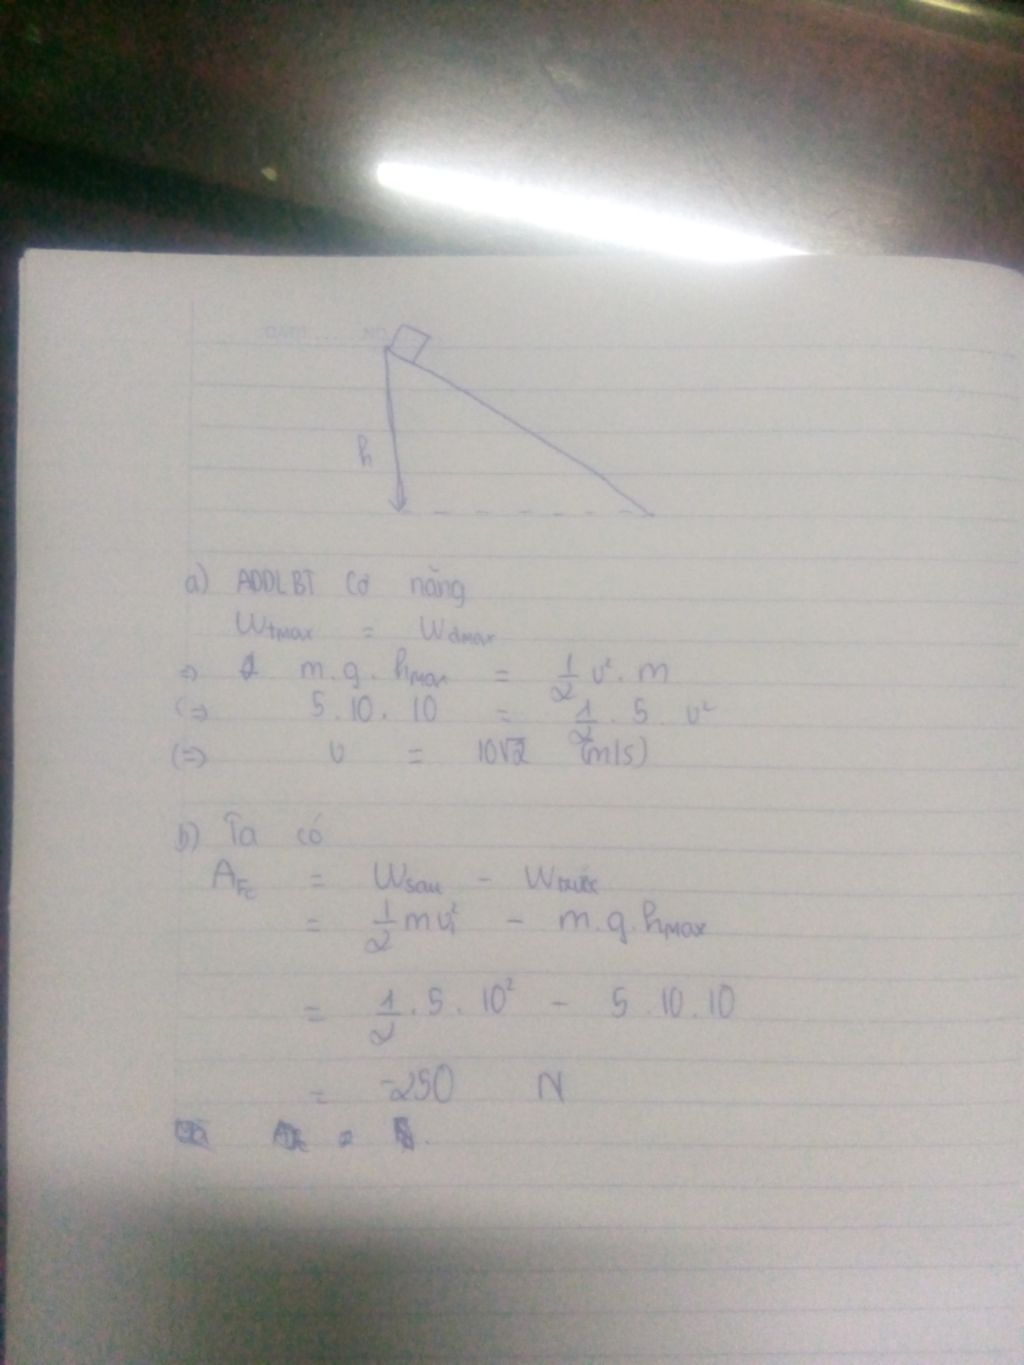 h
a) ADDLBT cơ năng
Wtmax = Wđmax
=> m.g.hmax = 1/2 v². m
<=> 5.10.10 = 1/2 . 5 v²
<=> v = 10√2 (m/s)
b) Ta có
AFc = Wsau - Wtrước
= 1/2 mv₁² - m.g.hmax
= 1/2 . 5 . 10² - 5.10.10
= -250 N